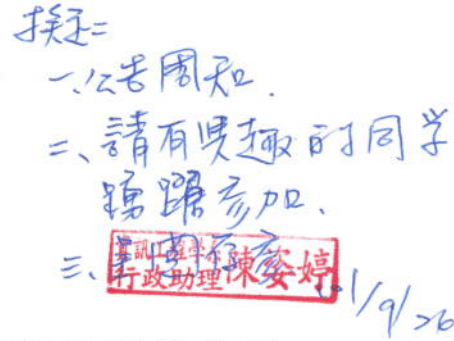 擬:
一、公告周知.
二、請有興趣的同学
踴躍參加.
三、
資訊工程學系
行政助理 陳姿婷
101/9/26